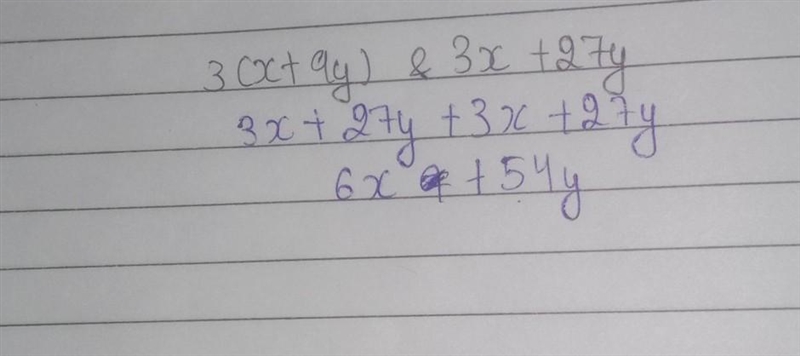 3(x+9y) & 3x +27y
3x + 27y +3x +27y
6x +54y